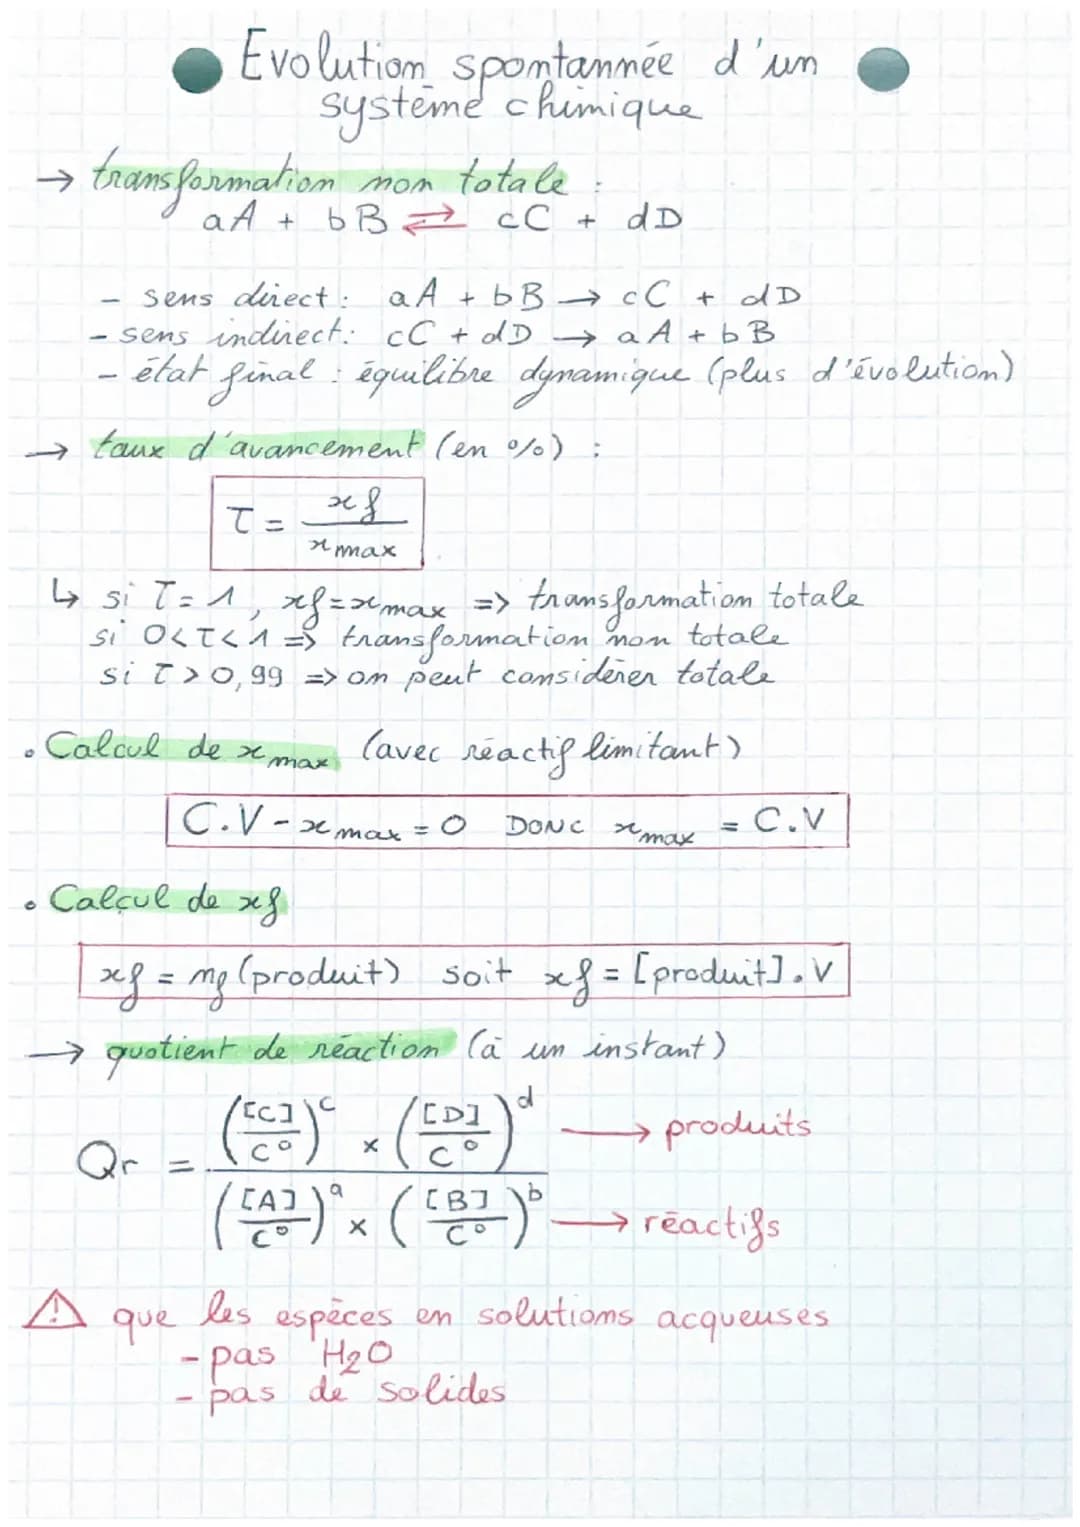 Evolution spontannée d'un
système chimique
→ transformation non totale :
aA + bB ⇄ cC + dD
- sens direct : aA + bB → cC + dD
- sens indirect : cC + dD → aA + bB
- état final : équilibre dynamique (plus d'évolution)
→ taux d'avancement (en %) :
τ = xf / xmax
↳ si τ = 1, xf = xmax => transformation totale
si 0<τ<1 => transformation non totale
si τ > 0,99 => on peut considérer totale
• Calcul de xmax (avec réactif limitant)
C.V - xmax = 0 DONC xmax = C.V
• Calcul de xf
xf = nf (produit) soit xf = [produit].V
→ quotient de réaction (à un instant)
Qr = (([C]/C°)^c × ([D]/C°)^d) / (([A]/C°)^a × ([B]/C°)^b)
→ produits
→ réactifs
⚠ que les espèces en solutions acqueuses
- pas H2O
- pas de solides